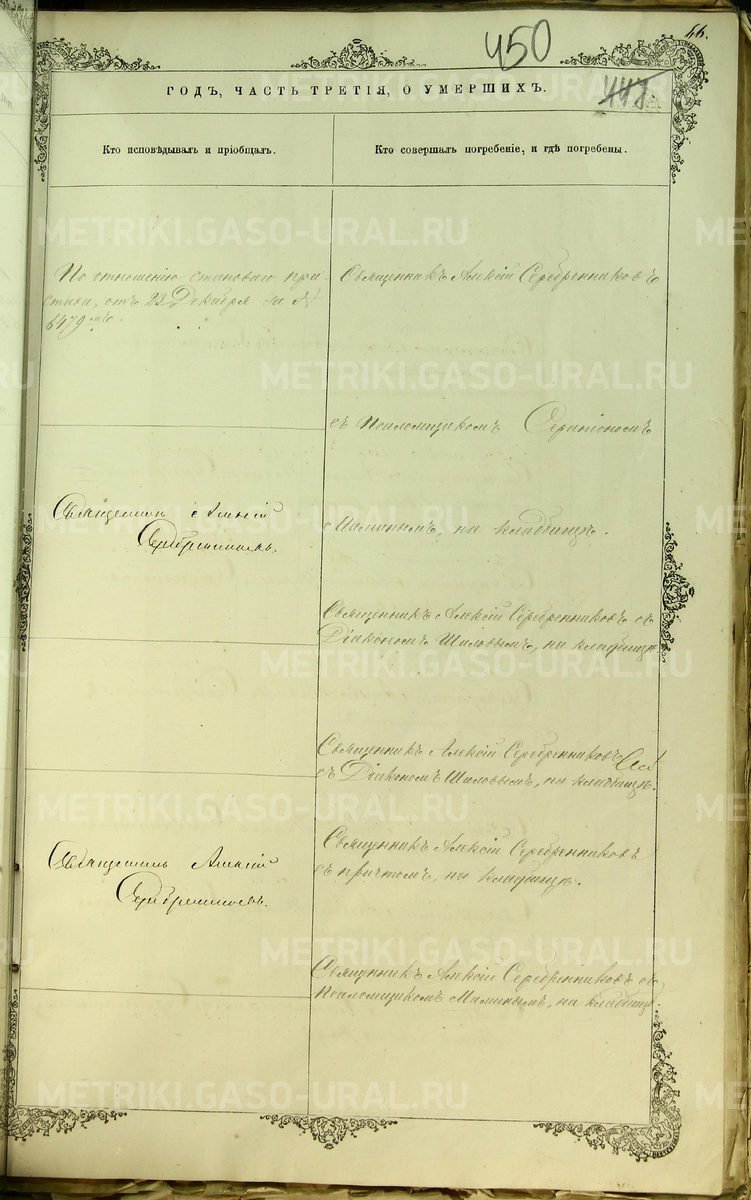 450
46.
ГОДЪ, ЧАСТЬ ТРЕТІЯ, О УМЕРШИХЪ.
447
Кто исповѣдывалъ и пріобщалъ.
Кто совершалъ погребеніе, и гдѣ погребены.
По отношенію становаго при-
става, отъ 23 Декабря за №
6479
Священникъ Алексій Серебренниковъ
съ Псаломщикомъ Серапіономъ
Священникъ Алексій
Серебренниковъ.
Маминымъ, на кладбищѣ.
Священникъ Алексій Серебренниковъ съ
Діакономъ Шиловымъ, на кладбищѣ.
Священникъ Алексій Серебренниковъ
съ Діакономъ Шиловымъ, на кладбищѣ.
Священникъ Алексій
Серебренниковъ.
Священникъ Алексій Серебренниковъ
съ причтомъ, на кладбищѣ.
Священникъ Алексій Серебренниковъ съ
Псаломщикомъ Маминымъ, на кладбищѣ.
METRIKI.GASO-URAL.RU